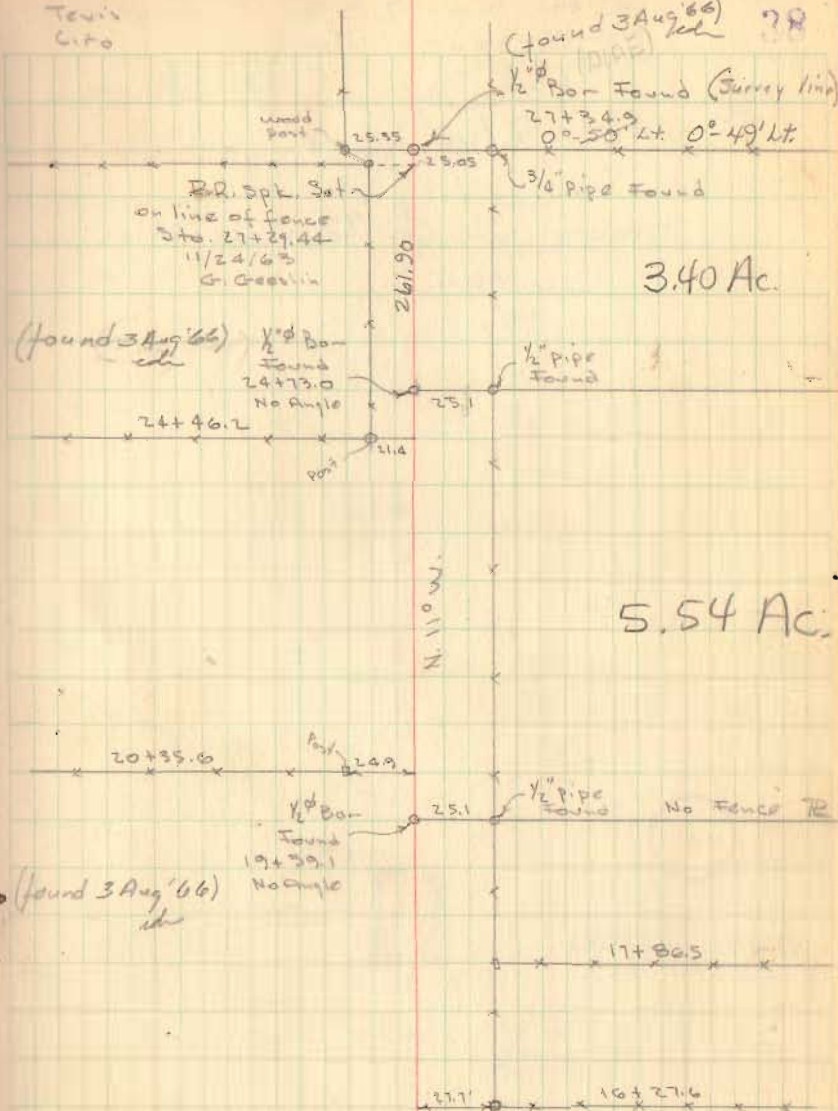 Tevis
Cito
38
(found 3 Aug '66)
edn
(pipe)
1/2"ø Bar Found (Survey line)
27+34.9
0°-50' Lt. 0°-49' Lt.
wood
post
25.35
25.05
3/4" pipe Found
B.R. Spk. Set
on line of fence
Sta. 27+29.44
11/24/63
G. Geeslin
261.90
3.40 Ac.
(found 3 Aug '66)
edn
1/2"ø Bar
Found
24+73.0
No Angle
1/2" pipe
Found
25.1
24+46.2
21.4
post
N. 11° W.
5.54 Ac.
20+35.6
Post
24.9
1/2"ø Bar
Found
19+99.1
No Angle
25.1
1/2" pipe
Found
No Fence
(found 3 Aug '66)
edn
17+86.5
27.7'
16+27.6